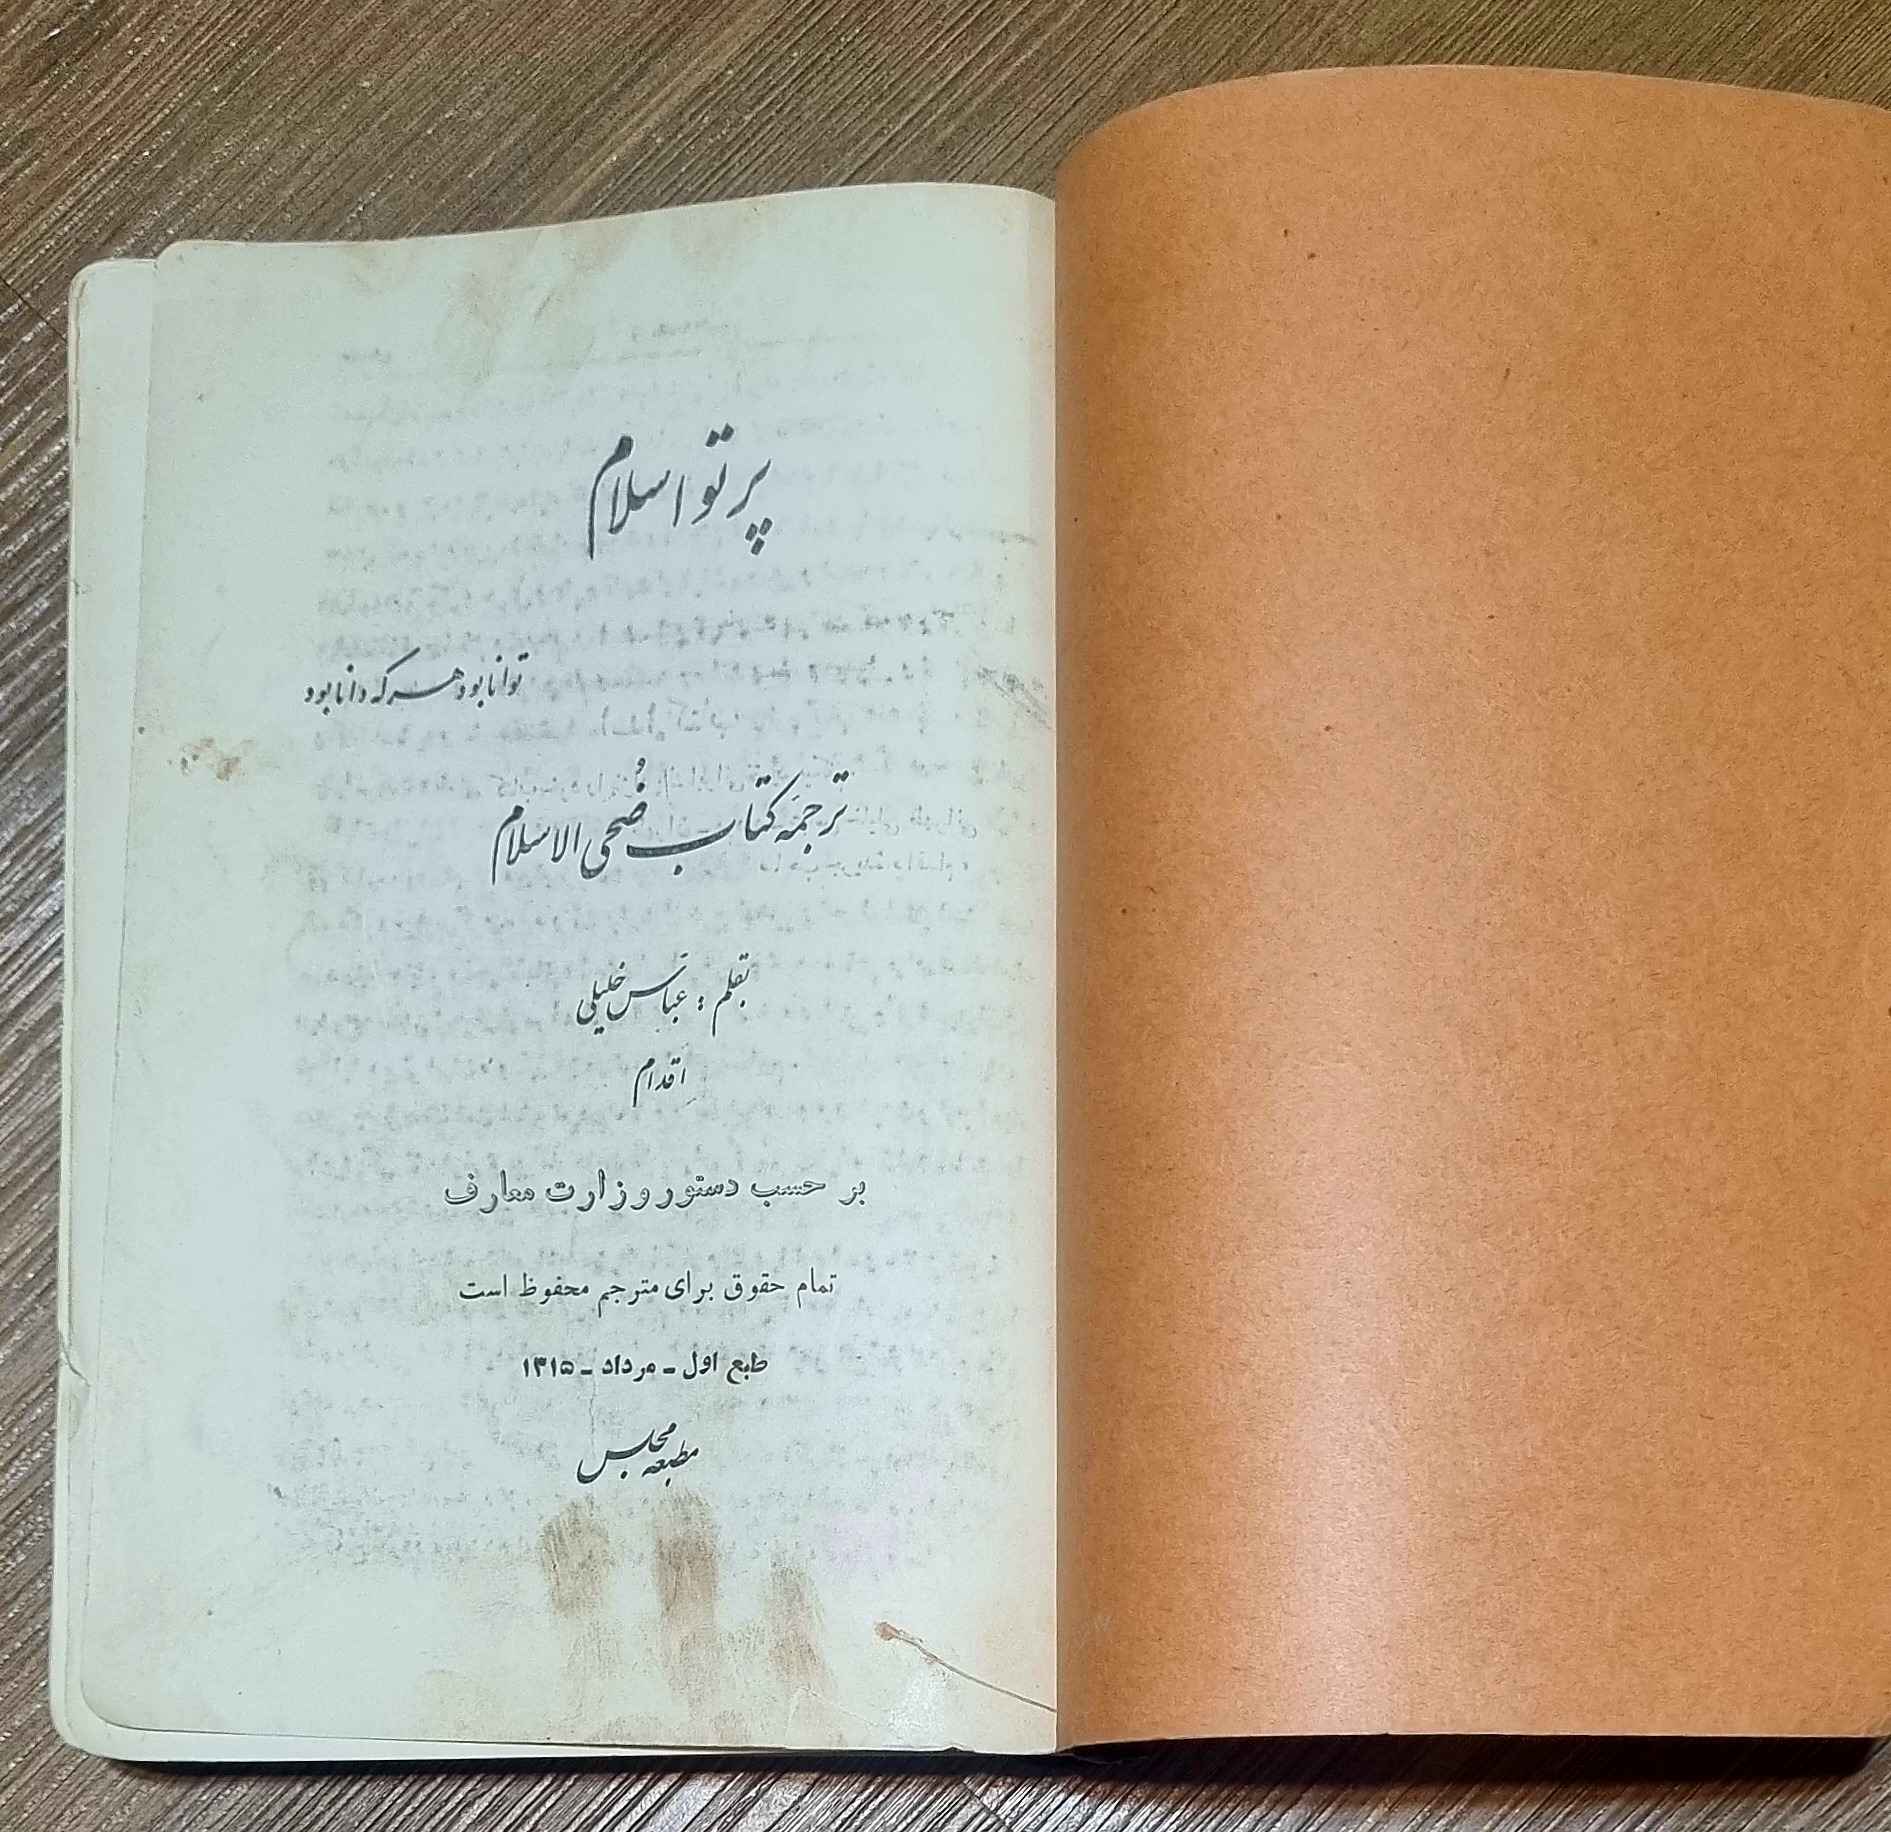 پرتو اسلام
توانا بود هر که دانا بود
ترجمَه کتاب ضُحی الاسلام
بقلم : عباس خلیلی
اقدام
بر حسب دستور وزارت معارف
تمام حقوق برای مترجم محفوظ است
طبع اول ـ مرداد ـ ۱۳۱۵
مطبعه مجلس